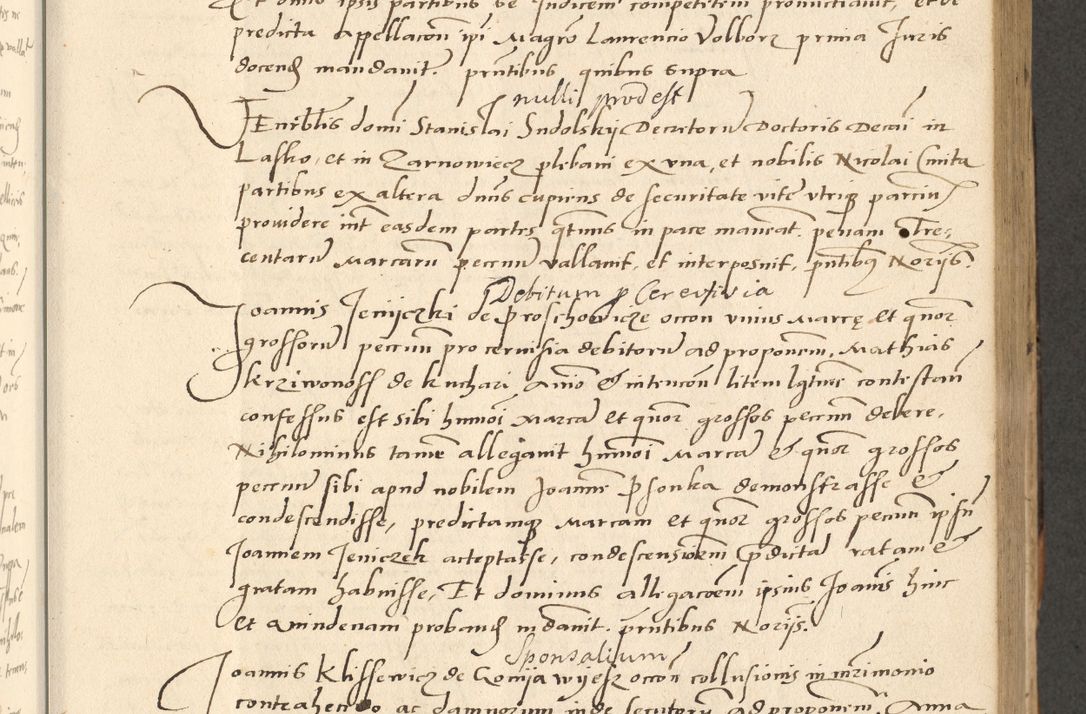 Et dnus ipsis partibus se Judicem competentem pronunctiavit, et de
predicta Appellacon ipi Magro Laurencio Volborz prima Juris
docend mandavit. pntibus quibus supra
nulli prodest
Venrblis domi Stanislai Sudolskij Decretoru Doctoris Decani in
Lasko, et in Zarnowiecz plebani ex una, et nobilis Nicolai Cmita
partibus ex altera dnus cupiens de securitate vite utriq parciu
providere int easdem partes qtnus in pace maneat. penam Tre,
centaru Marcaru peccnie vallavit, et interposuit, pntibq Norijs.
Debitum p Cerevisia
Joannis Jenijczki de Proschowicze occon unius Marce et quor
grossoru peccun pro cervisia debitoru ad proponem, Mathias
Krziwonoss de Kuchari Anio & intencon litem lgtime contestan
confessus est sibi humoi Marca et quor grossos peccun debere,
Nihilominus tame allegavit humoi Marca & quor grossos
peccnie sibi apud nobilem Joanne Psonka demonstrasse &
condescendisse, predictamq Marcam et quor grossos pecun ipsu
Joannem Jeniczek acceptasse, condescensionem pdicta ratam &
gratam habuisse, Et dominus allegacoem ipsius Joanis hinc
et Aiundenam proband mdavit. pntibus Norijs.
Sponsalium
Joannis Klissewicz de occon collusionis in mrimonio
contrahendo ac damnorum inde secutoru ad proponem, Anna